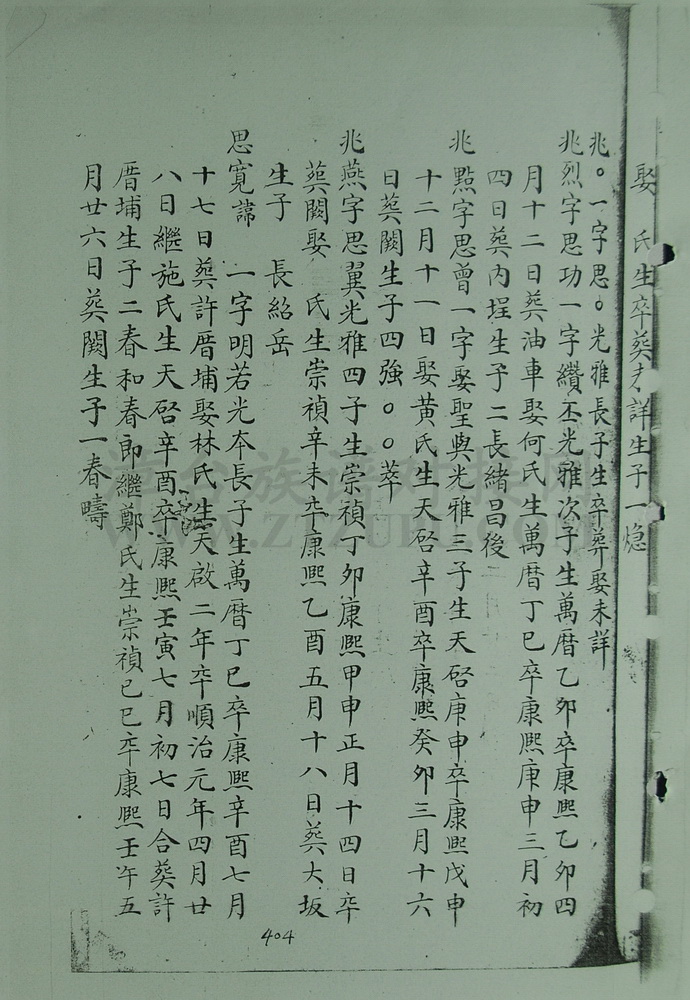 娶　氏生卒葵未詳生子一熜
兆〇一字思〇光雅長子生卒葬娶未詳
兆烈字思功一字纘丕光雅次子生萬曆乙卯卒康熙乙卯四
月十二日葵油車娶何氏生萬曆丁巳卒康熙庚申三月初
四日葵內埕生子二長緒昌後
兆點字思曾一字聖與光雅三子生天啓庚申卒康熙戊申
十二月十一日娶黃氏生天啓辛酉卒康熙癸卯三月十六
日葵闕生子四強〇〇萃
兆燕字思翼光雅四子生崇禎丁卯康熙甲申正月十四日卒
葵闕娶　氏生崇禎辛未卒康熙乙酉五月十八日葵大坂
生子　長紹岳
思寬諱　一字明若光本長子生萬曆丁巳卒康熙辛酉七月
十七日葵許厝埔娶林氏生天啟二年卒順治元年四月廿
八日繼施氏生天啓辛酉卒康熙壬寅七月初七日合葵許
厝埔生子二春和春郎繼鄭氏生崇禎己巳卒康熙壬午五
月廿六日葵闕生子一春疇
404
WWW.ZTZUPU.COM